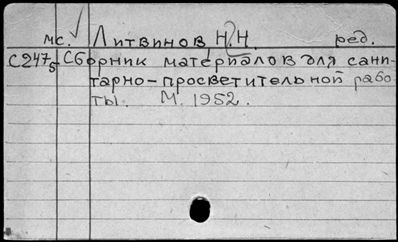 мс. Литвинов Н.Н. ред.
С247s Сборник материалов для сани-
тарно-просветительной рабо
ты. М. 1952.